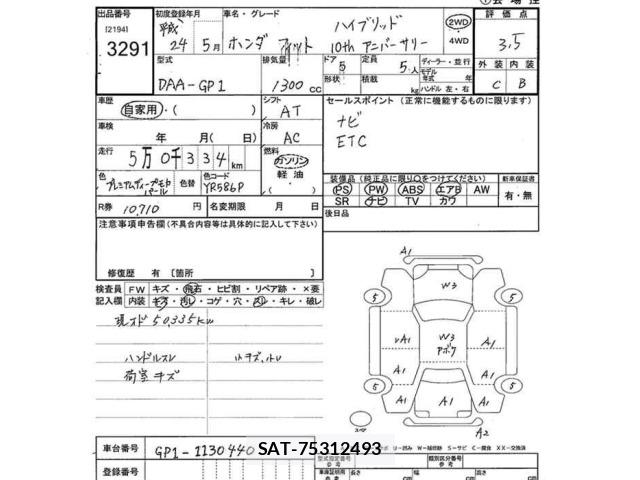 出品番号 初度登録年月 車名・グレード ハイブリッド 評価点
[2194] 平成 2WD
3291 24年 5月 ホンダ フィット 10th アニバーサリー 4WD 3.5
型式 排気量 ドア 5 定員 5人 ディーラー・並行 外装 内装
形状 積載 kg モデル年式 年 ハンドル 左・右
DAA-GP1 1300 cc C B
車歴 自家用・( ) シフト AT セールスポイント(正常に機能するものに限ります)
ナビ
車検 年 月( 日) 冷房 AC ETC
走行 5万0千334km 燃料 ガソリン
軽油・
装備品(純正品に限り○をつけてください) 新車保証書
色 プレミアムディープモカパール 色コード YR586P PS PW ABS エアB AW 有・無
SR ナビ TV カワ
R券 10,710円 名変期限 月 日 後日品
注意事項申告欄(不具合内容等は具体的に記入して下さい)
修復歴 有[箇所 ]
検査員記入欄 FW キズ・飛石・ヒビ割・リペア跡・×要
内装 キズ・汚レ・コゲ・穴・スレ・キレ・破レ
現オド 50,335km
ハンドルスレ 小キズ,
荷室キズ
A1
W3
5 5
A1 W3 A1
アボワ
A1 A1
5 5
A1 A1 A1
スペア A2
車台番号 GP1-1130440 SAT-75312493
登録番号
型式指定番号 類別区分番号
参考 参考
長さ 幅 高さ